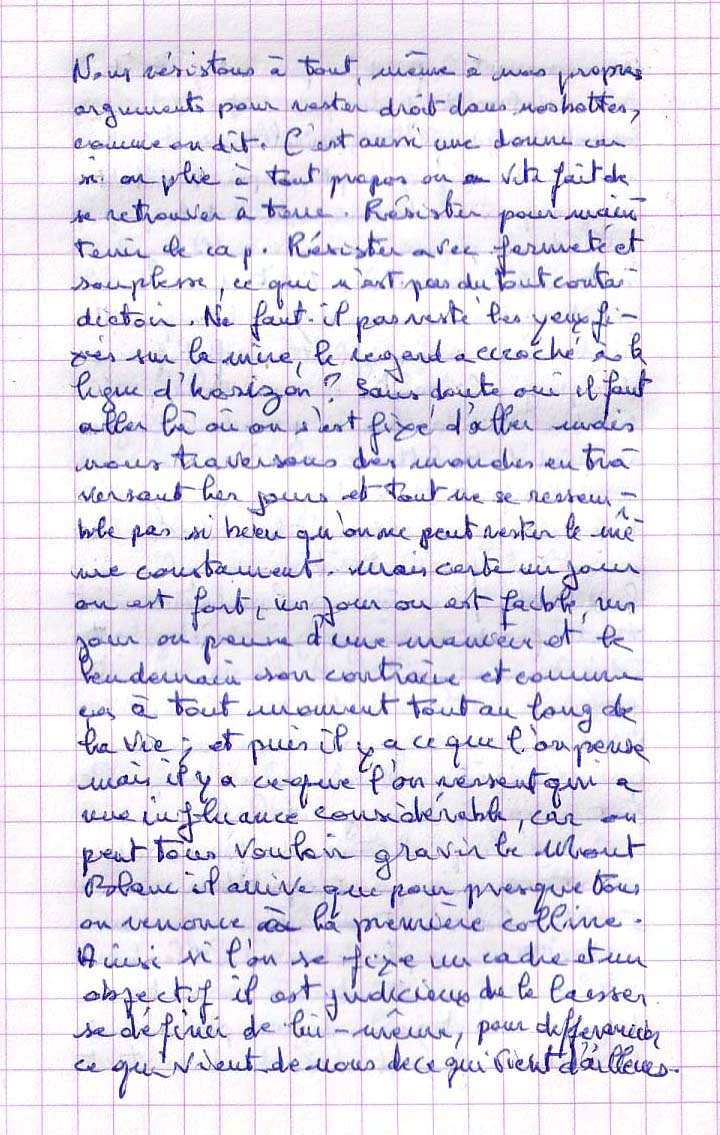 Nous résistons à tout, même à nos propres
arguments pour rester droit dans nos bottes,
comme on dit. C'est aussi une donne car
si on plie à tout propos on a vite fait de
se retrouver à terre. Résister pour main
tenir le cap. Résister avec fermeté et
souplesse, ce qui n'est pas du tout contra-
dictoir. Ne faut-il pas resté les yeux fi-
xés sur la mire, le regard accroché à la
ligne d'horizon? Sans doute oui il faut
aller là où on s'est fixé d'aller mais
nous traversons des mondes en tra
versant les jours et tout ne se ressem-
ble pas si bien qu'on ne peut rester le mê
me constament. Mais certe un jour
on est fort, un jour on est faible, un
jour on pense d'une manière et le
lendemain son contraire et comme
ça à tout moment tout au long de
la vie; et puis il y a ce que l'on pense
mais il y a ce que l'on ressent qui a
une influance considérable, car on
peut tous vouloir gravir le Mont
Blanc il arrive que pour presque tous
on renonce à la première colline.
Ainsi si l'on se fixe un cadre et un
objectif il est judicieux de le laisser
se définir de lui-même, pour differencier
ce qui vient de nous de ce qui vient d'ailleurs.